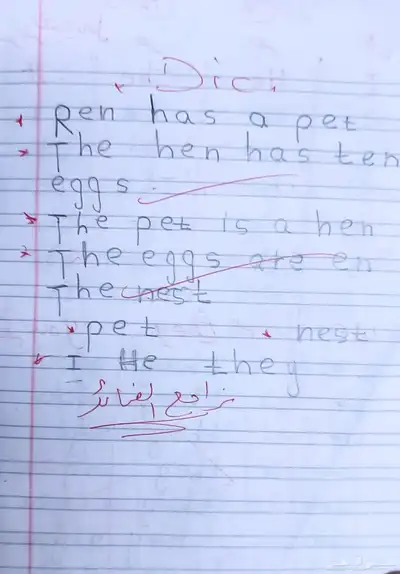 Dic.
Ren has a pet
The hen has ten
eggs.
The pet is a hen
The eggs are en
The nest
pet nest
I He they
نراجع الضمائر